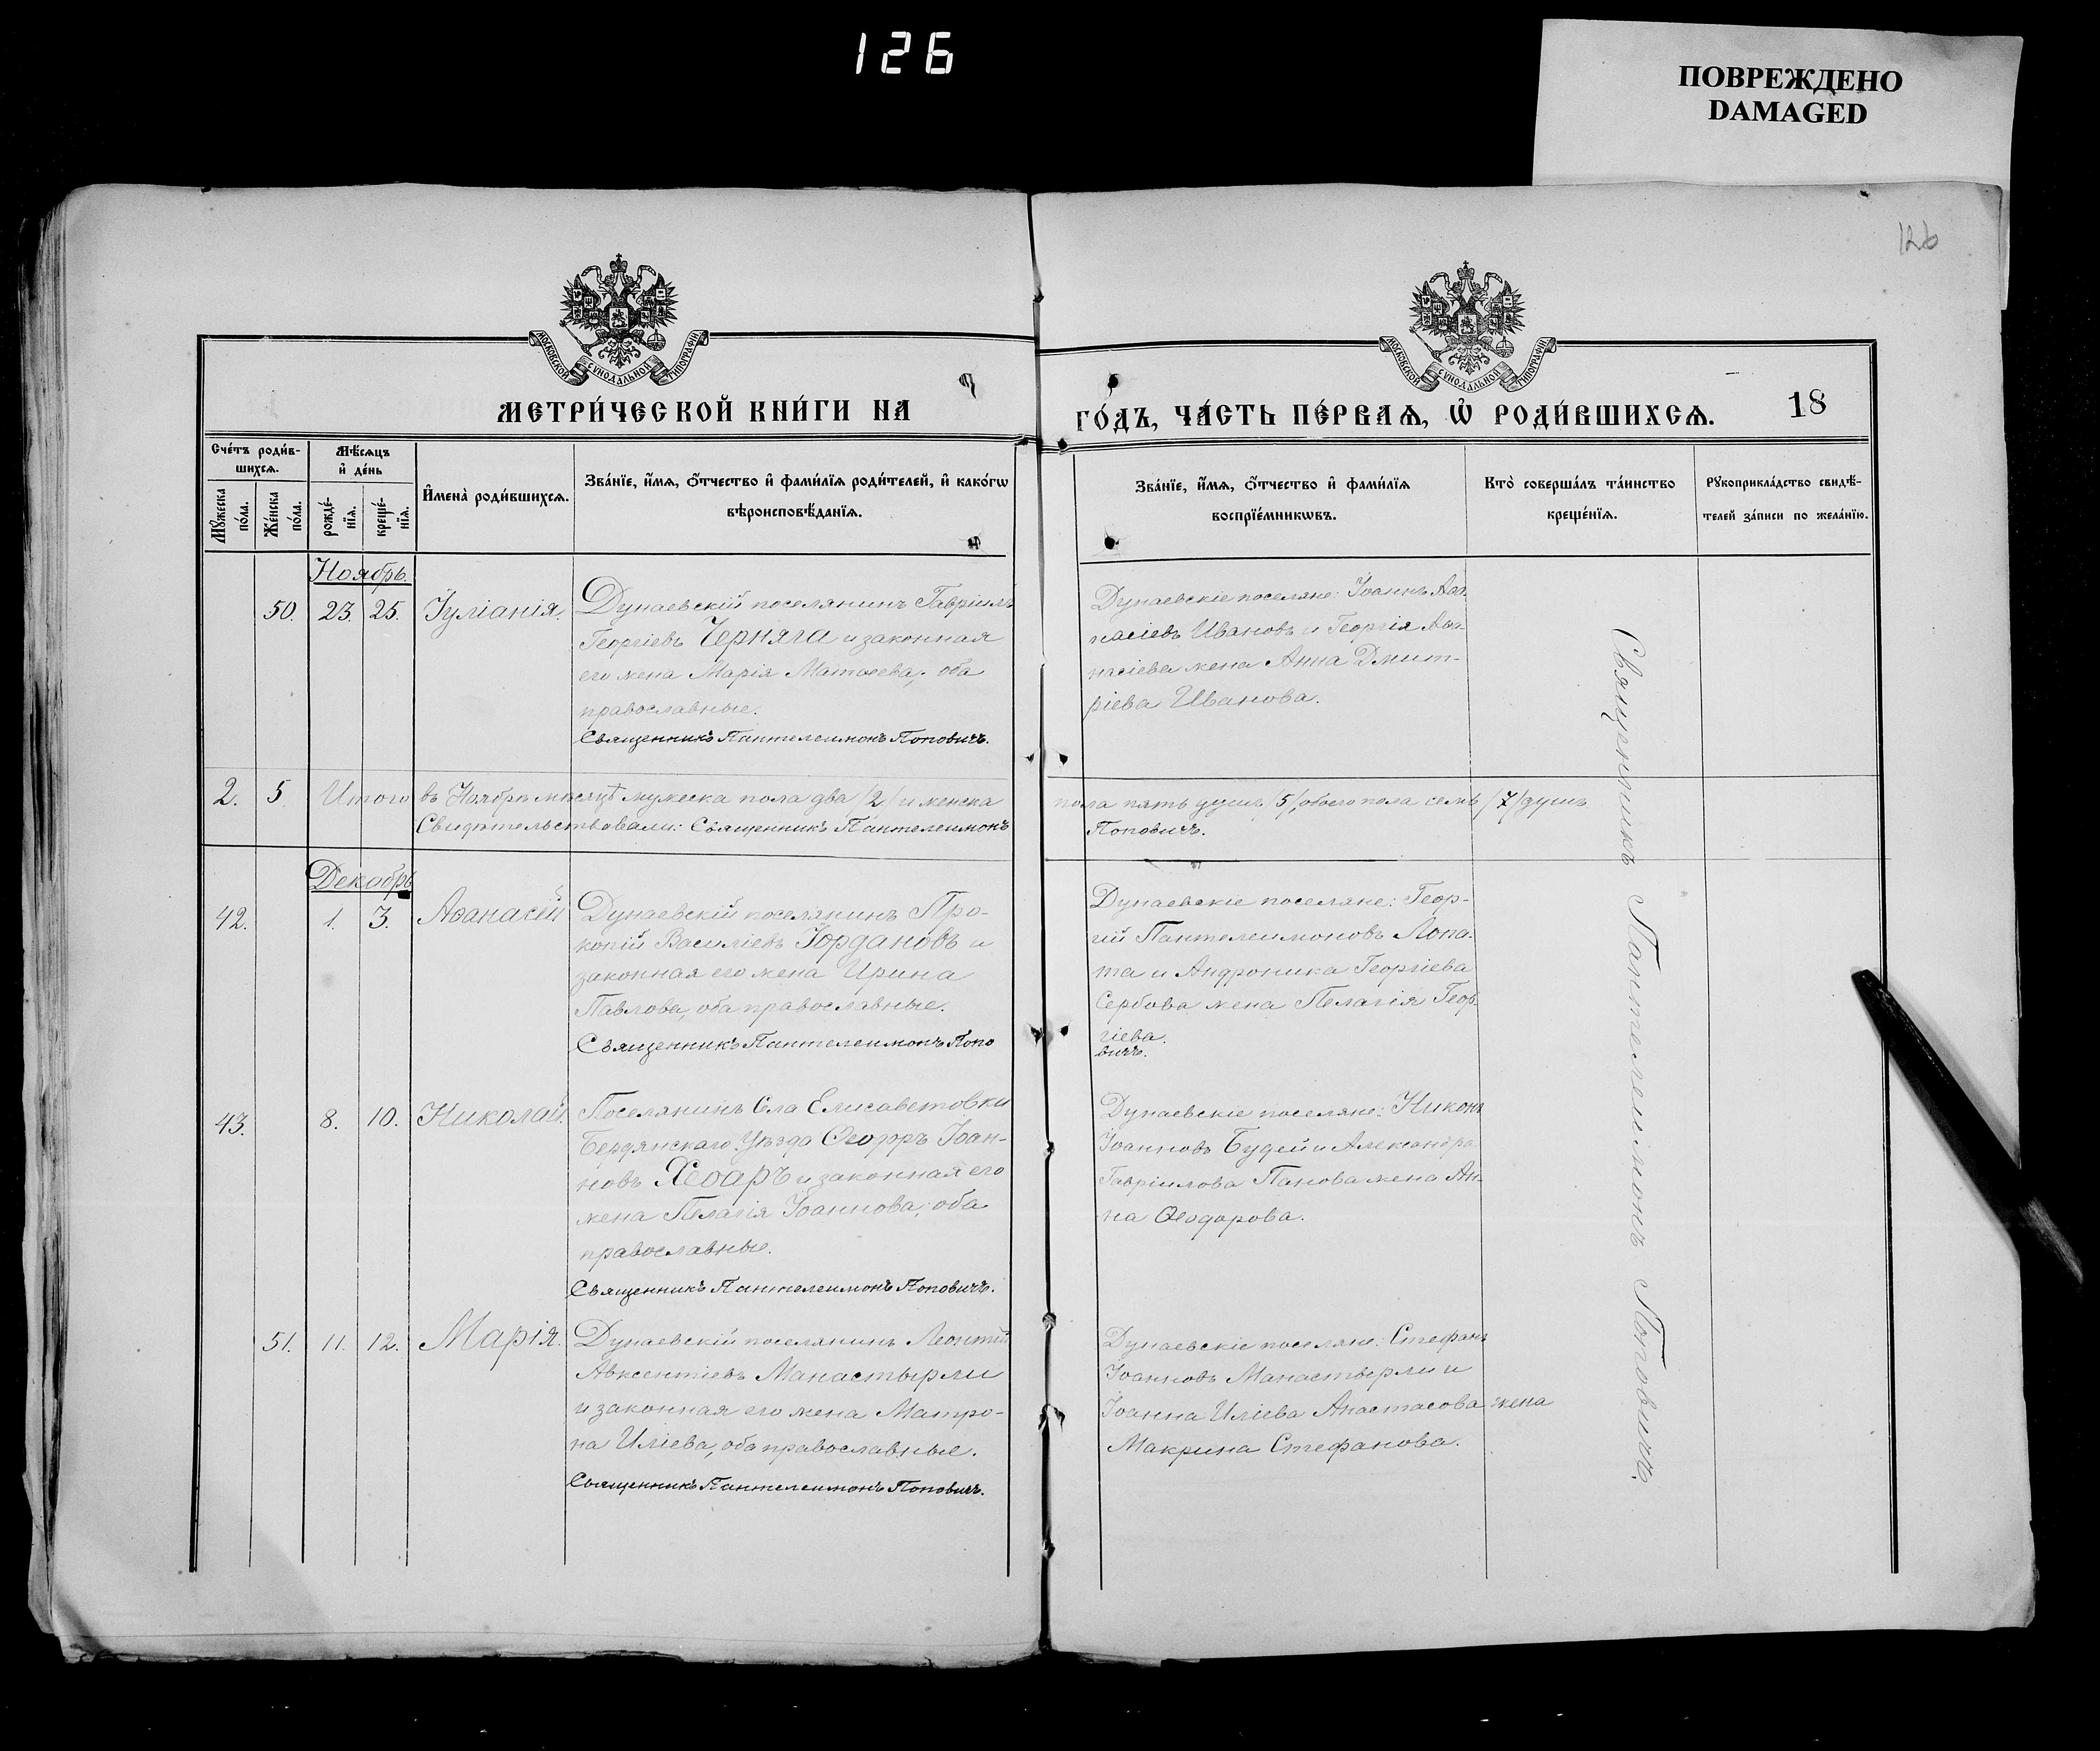 126
ПОВРЕЖДЕНО
DAMAGED
126
МОСКОВСКОЙ СѴНОДАЛЬНОЙ ТИПОГРАФІИ
МОСКОВСКОЙ СѴНОДАЛЬНОЙ ТИПОГРАФІИ
МЕТРИ́ЧЕСКОЙ КНИ́ГИ НА
ГО́ДЪ, ЧА́СТЬ ПЕ́РВАѦ, Ѡ РОДИ́ВШИХСѦ.
18
Сче́тъ роди́в-
шихсѧ.
Мѣ́сѧцъ
и де́нь
Мꙋжеска
по́ла.
Же́нска
по́ла.
рожде́-
нїѧ.
креще́-
нїѧ.
Имена̀ роди́вшихсѧ.
Зва́нїе, и́мѧ, ѻ́тчество и фами́лїѧ роди́телей, и како́гѡ
вѣроисповѣ́данїѧ.
Зва́нїе, и́мѧ, ѻ́тчество и фами́лїѧ
воспрїе́мникѡвъ.
Кто̀ соверша́лъ та́инство
креще́нїѧ.
Рꙋкоприкла́дство свидѣ́-
телей за́писи по жела́нїю.
Ноябрь.
50. 23. 25. Іуліанія. Дунаевскій поселянинъ Гавріилъ
Георгіевъ Черняга и законная
его жена Марія Матѳеева, оба
православные.
Священникъ Пантелеимонъ Поповичъ.
Дунаевскіе поселяне: Іоаннъ Аѳа-
насіевъ Ивановъ и Георгія Аѳа-
насіева жена Анна Дмит-
ріева Иванова.
2. 5. Итого въ Ноябрѣ мѣсяцѣ мужеска пола два /2/ и женска
пола пять душъ /5/, обоего пола семь /7/ душъ
Свидѣтельствовали: Священникъ Пантелеимонъ
Поповичъ.
Декабрь
42. 1. 3. Аѳанасій Дунаевскій поселянинъ Про-
копій Василіевъ Іордановъ и
законная его жена Ирина
Павлова, оба православные.
Священникъ Пантелеимонъ Попо
Дунаевскіе поселяне: Геор-
гій Пантелеимоновъ Лопа-
та и Андроника Георгіева
Сербова жена Пелагія Геор-
гіева.
вичъ.
43. 8. 10. Николай. Поселянинъ Села Елисаветовки
Бердянскаго Уѣзда Ѳеодоръ Іоан-
новъ и законная его
жена Пелагія Іоаннова, оба
православные.
Священникъ Пантелеимонъ Поповичъ.
Дунаевскіе поселяне: Никонъ
Іоанновъ Будей и Александра
Гавріилова Панова жена Ан-
на Ѳеодорова.
51. 11. 12. Марія. Дунаевскій поселянинъ Леонтій
Авксентіевъ Манастырли
и законная его жена Матро-
на Иліева, оба православные.
Священникъ Пантелеимонъ Поповичъ.
Дунаевскіе поселяне: Стефанъ
Іоанновъ Манастырли и
Іоанна Иліева Анастасова жена
Макрина Стефанова.
Священникъ Пантелеимонъ Поповичъ.